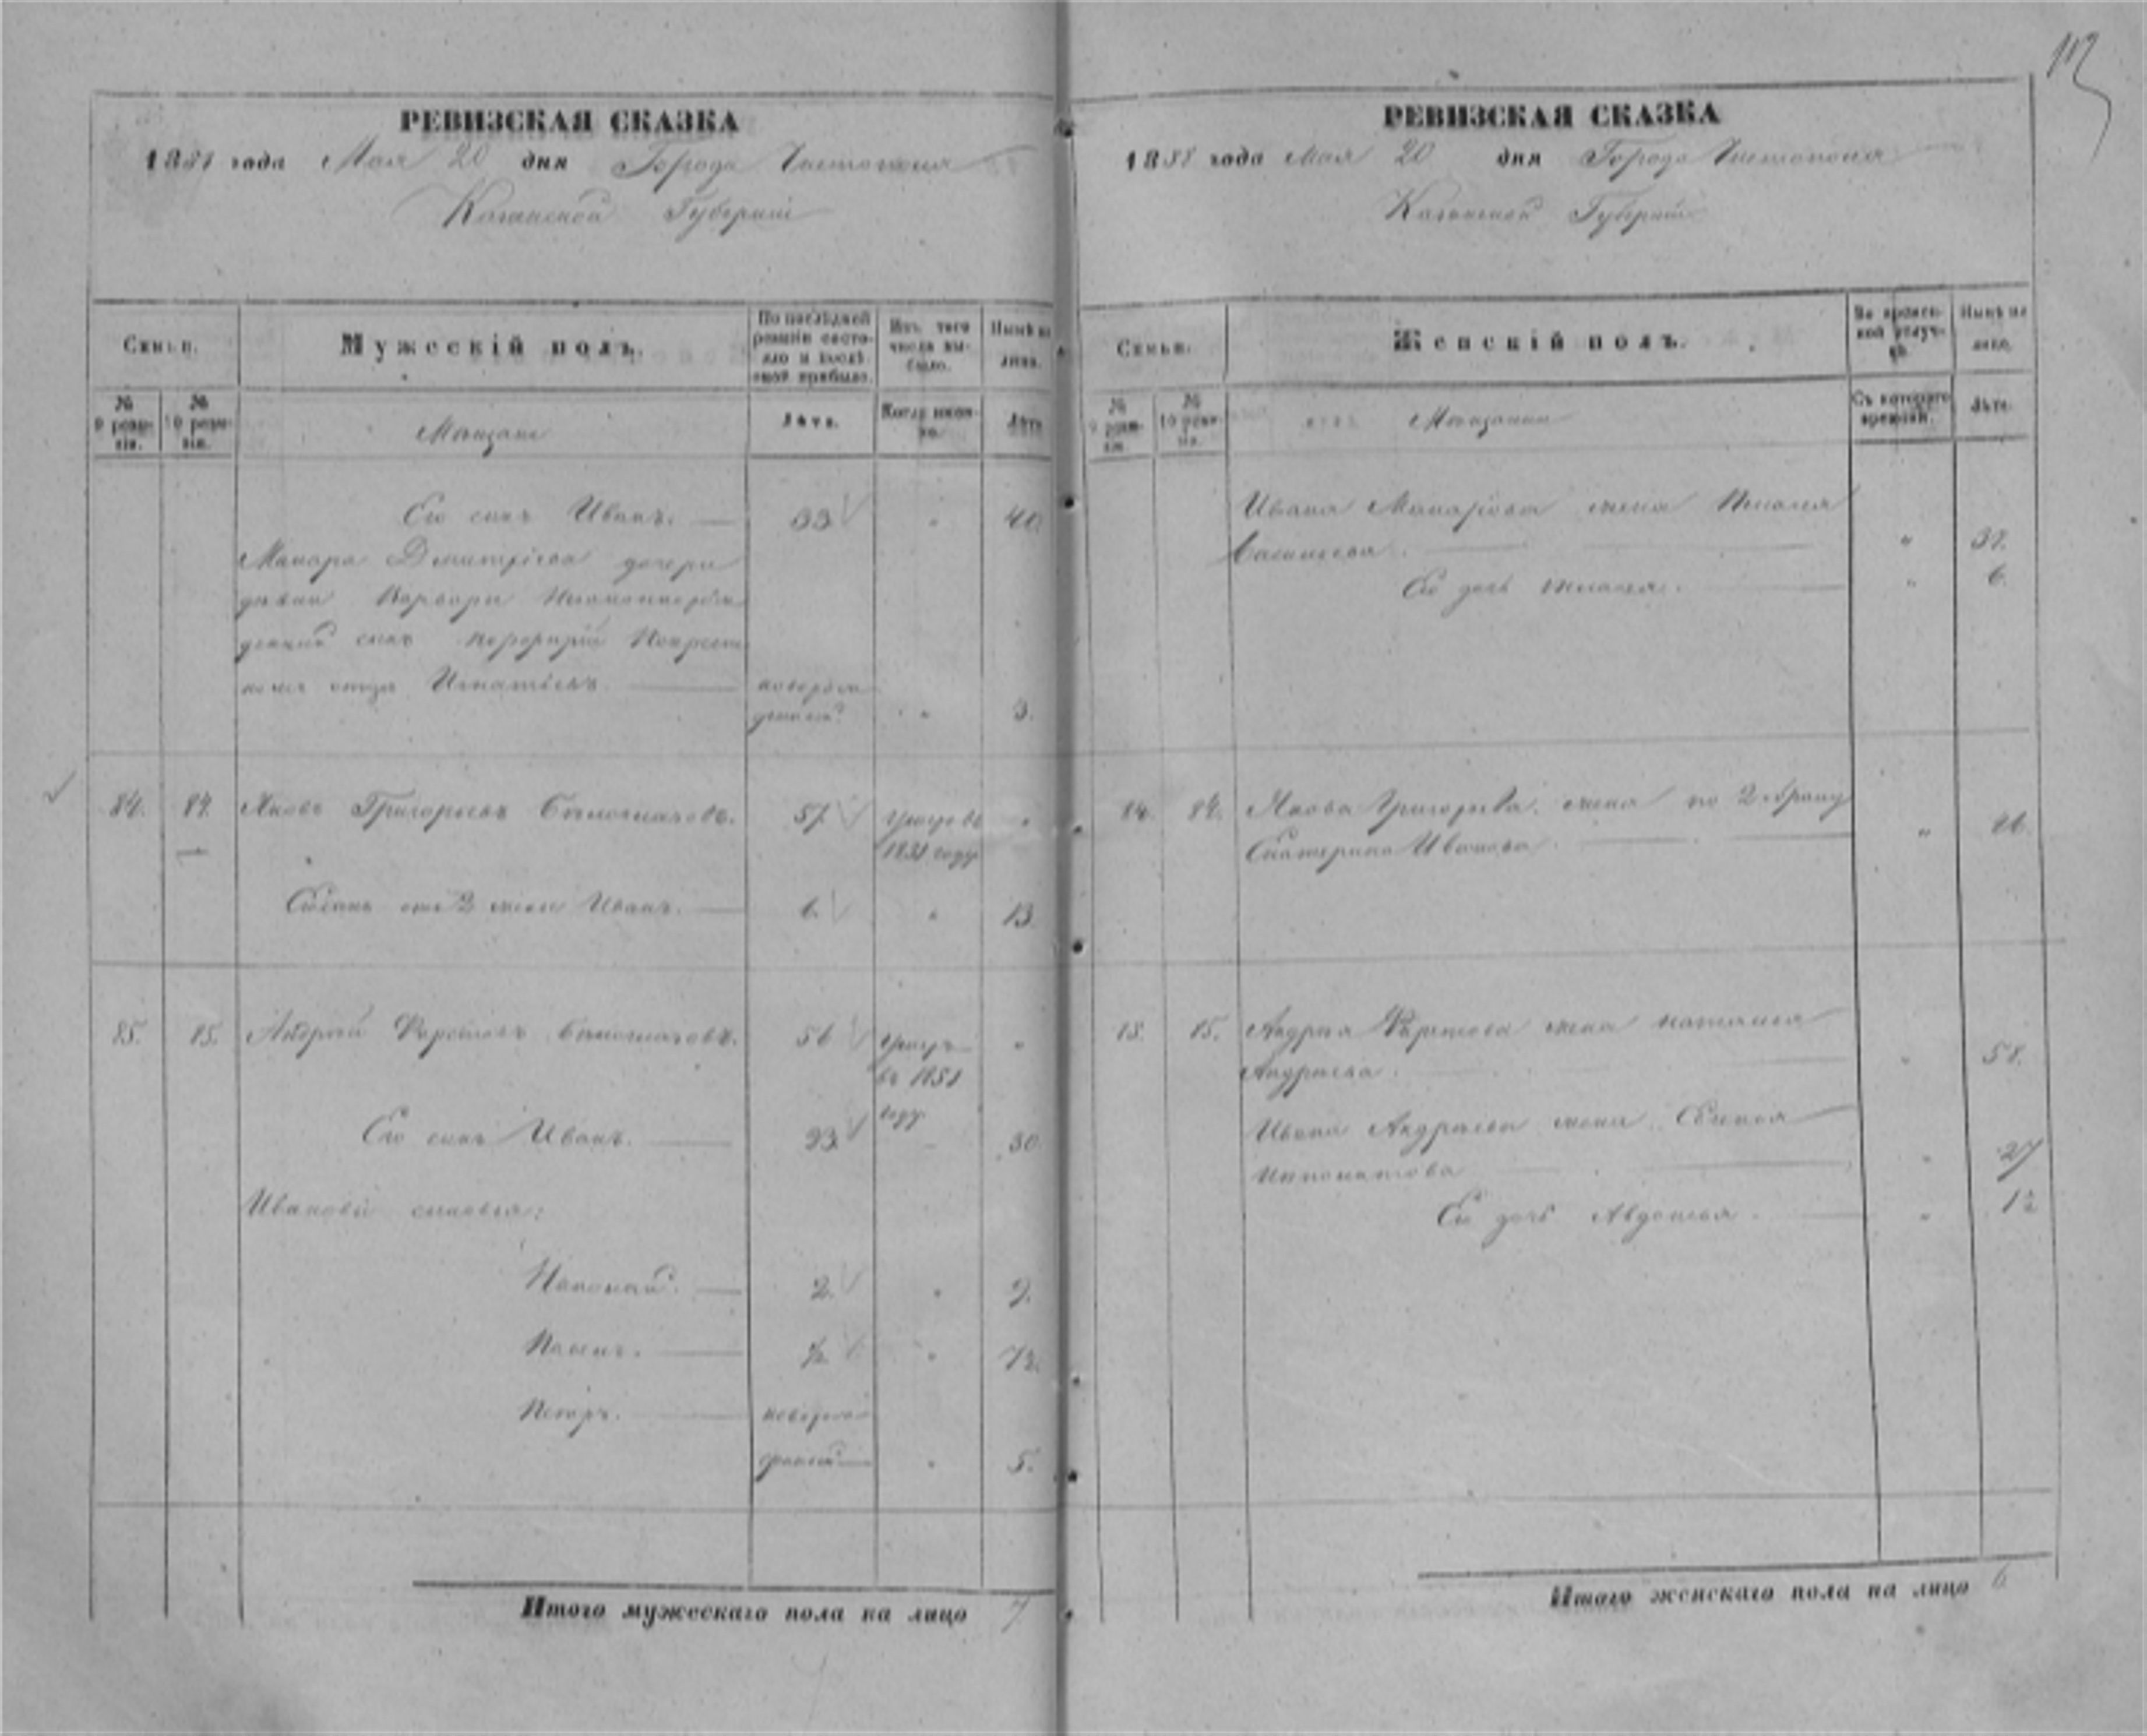 РЕВИЗСКАЯ СКАЗКА
1858 года Мая 20 дня Города Чистополя
Казанской Губерніи
Семьи.
Мужескій полъ.
По послѣдней ревизіи состояло и послѣ оной прибыло.
Изъ того числа выбыло.
Нынѣ на лицо.
№ 9 ревизіи.
№ 10 ревизіи.
Мѣщане
Лѣта.
Когда именно.
Лѣта
Его сынъ Иванъ. 33 " 40.
Макара Дмитріева дочери
дѣвки Варвары Незаконнорож
денный сынъ Порфирій По крест
ному отцу Игнатьевъ. новорож
денный " 3.
84. 84. Яковъ Григорьевъ 57 умеръ въ "
1851 году
Его сынъ отъ 2 жены Иванъ. 6. " 13.
85. 85. Андрей 56 умеръ "
въ 1851
году
Его сынъ Иванъ. 23 30
Ивановы сыновья:
Николай. 2. " 9.
" 7½.
Петръ. новорож
денный " 5.
Итого мужескаго пола на лицо 7
113
РЕВИЗСКАЯ СКАЗКА
1858 года Мая 20 дня Города Чистополя
Казанской Губерніи
Семьи.
Женскій полъ.
Во временной отлучкѣ.
Нынѣ на лицо.
№ 9 ревизіи.
№ 10 ревизіи.
Мѣщане
Съ котораго времени.
Лѣта.
Ивана Макарова жена
" 37.
Его дочь " 6.
84. 84. Якова Григорьева жена по 2 браку
Екатерина Иванова "
85. 85. Андрея жена Наталья
Андреева. " 58.
Ивана Андреева жена
" 27
Его дочь Авдотья. " 12
Итого женскаго пола на лицо 6